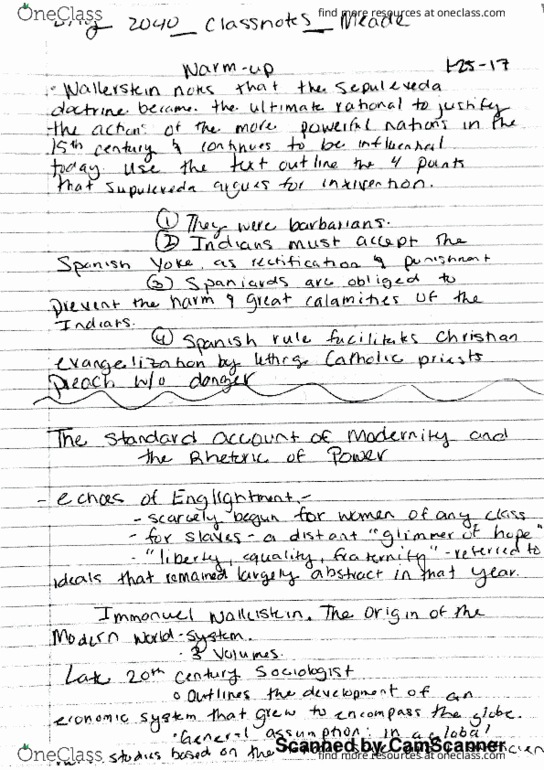 OneClass
find more resources at oneclass.com
2040 Classnotes Meade
Warm-up 1-25-17
· Wallerstein notes that the Sepulveda
doctrine became the ultimate rational to justify
the actions of the more powerful nations in the
15th century & continues to be influential
today. Use the text outline the 4 points
that Supulveda argues for intervention.
① They were barbarians.
② Indians must accept the
Spanish Yoke, as rectification & punishment
③ Spaniards are obliged to
prevent the harm & great calamities of the
Indians.
④ Spanish rule facilitates Christian
evangelization by letting Catholic priests
preach w/o danger
The Standard Account of Modernity and
the Rhetoric of Power
- echoes of Englightment -
- scarcely begun for women of any class
- for slaves - a distant "glimmer of hope"
- "liberty, equality, fraternity" - referred to
ideals that remained largely abstract in that year.
Immanuel Wallerstein. The Origin of the
Modern World-System.
· 3 Volumes.
Late 20th Century Sociologist
° Outlines the development of an
economic system that grew to encompass the globe.
· General assumption: in a global
studies based on the
Scanned by CamScanner
OneClass
find more resources at oneclass.com